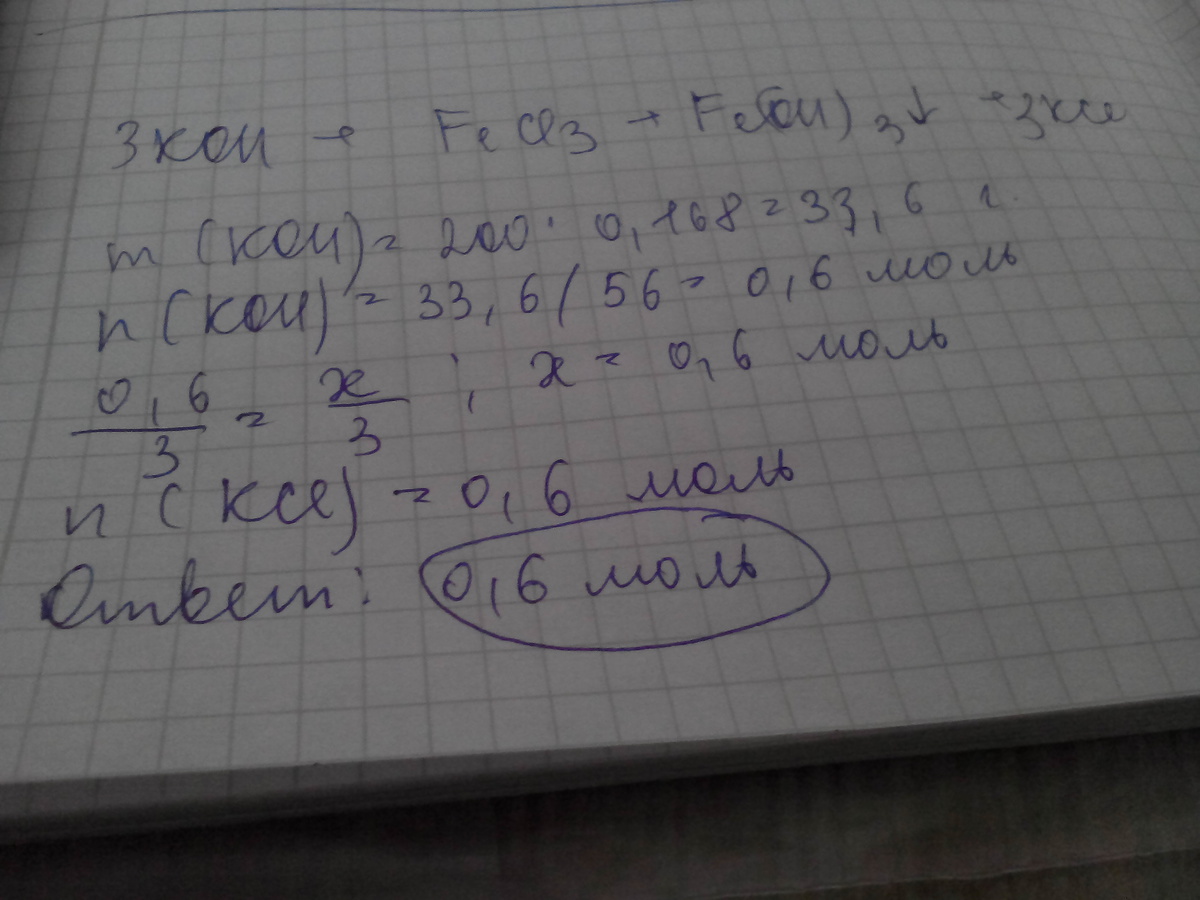 3KOH + FeCl3 → Fe(OH)3↓ + 3KCl
m (KOH) = 200 · 0,168 = 33,6 г.
n (KOH) = 33,6 / 56 = 0,6 моль
0,6/3 = x/3 ; x = 0,6 моль
n (KCl) = 0,6 моль
Ответ: 0,6 моль